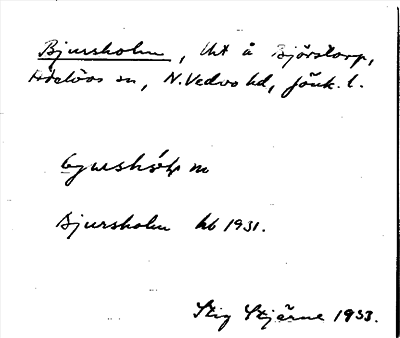 Bjursholm, lht å Björstorp,
Edelövs sn, N. Vedbo hd, Jönk. l.
Bjursholm hb 1931.
Stig Stjärne 1933.